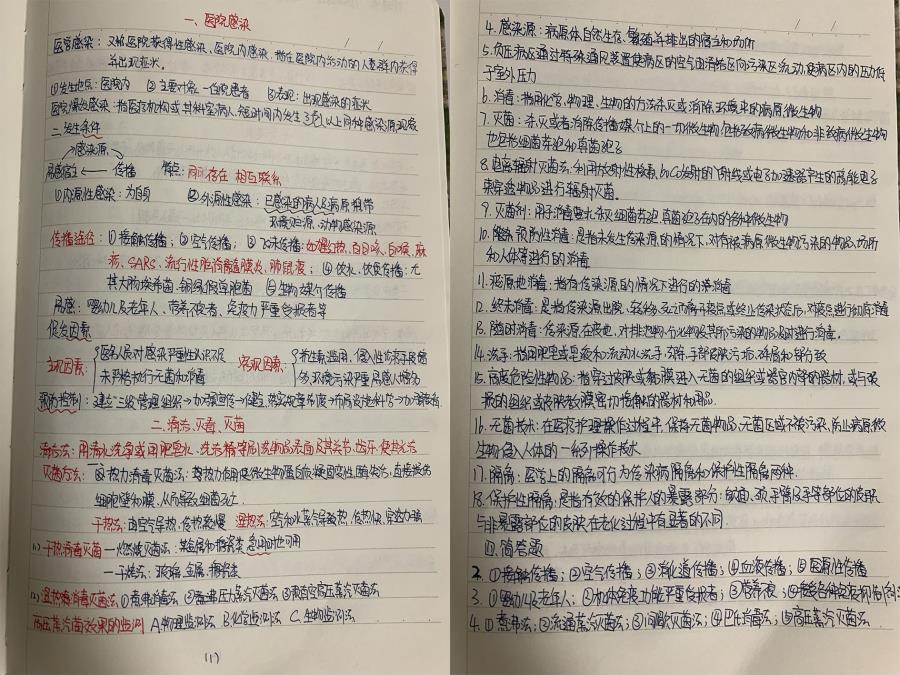 一、医院感染
医院感染：又称医院获得性感染、医院内感染，指在医院内活动的人群在医院内获得
并出现症状。
①发生地点：医院内 ②主要对象：一住院患者 ③表现：出现感染的症状
医院爆发感染：指医疗机构或其科室病人，短时间内发生3例以上同种感染源现象
二、发生条件
感染源
易感宿主 传播 特点：同时存在 相互联系
①内源性感染：为自身 ②外源性感染：已感染的病人及病原携带
环境贮源、动物感染源
传播途径：①接触传播；②空气传播；③飞沫传播：如猩红热、百日咳、白喉、麻
疹、SARS、流行性脑脊髓膜炎、肺鼠疫；④饮水、饮食传播：尤
其大肠埃希菌、铜绿假单胞菌 ⑤生物媒介传播
易感：婴幼儿及老年人、营养不良者、免疫力严重受损者等
促发因素
主观因素：医务人员对感染严重性认识不足 客观因素：抗生素滥用，侵入性诊疗手段增
未严格执行无菌和消毒 多，环境污染严重，易感人增多
预防控制：建立"三级"管理组织→加强宣传→健全、落实规章制度→布局设施科学→加
二、清洁、灭菌、灭菌
清洁法：用清水洗净或用肥皂水、洗洁精等刷洗物品表面及其关节、齿牙，使其光洁
灭菌方法：一、热力消毒灭菌法：靠热力作用使微生物蛋白质凝固变性，酶失活，直接损伤
细胞壁和膜，从而导致细菌死亡
干热法：由空气导热，传热较慢 湿热法：空气和水蒸气导散热，传热快，穿透力强
(1)干热消毒灭菌—燃烧灭菌法：某金属和搪瓷类急用时也可用
—干烤法：玻璃、金属、搪瓷类
(2)湿热消毒灭菌法 ①煮沸消毒法 ②高压压力蒸汽灭菌法 ③预真空高压蒸汽灭菌法
高压蒸汽灭菌效果的监测 A.物理监测法 B.化学监测法 C.生物监测法
(1)
4.感染源：病原体自然生存、繁殖并排出的宿主和场所
5.负压病区通过特殊通风装置使病区的空气由清洁区向污染区流动，使病区内的压力低
于室外压力
6.消毒：指用化学、物理、生物的方法杀灭或消除环境中的病原微生物
7.灭菌：杀灭或者消除传播媒介上的一切微生物，包括致病微生物和非致病微生物
也包括细菌芽孢和真菌孢子
8.电离辐射灭菌法：利用放射性核素60Co发射的γ射线或电子加速器产生的高能电子
束穿透物品进行辐射灭菌。
9.灭菌剂：用于消毒要求杀灭细菌芽孢、真菌孢子在内的各种微生物
10.预防性消毒：是指未发生传染源的情况下，对有被病原微生物污染的物品、场所
和人体等进行的消毒
11.疫源地消毒：指有传染源的情况下进行的消毒
12.终末消毒：是指传染源出院、转移、死亡而离开疫点或终止传染状态后，对疫点进行彻底消毒
13.随时消毒：传染源在疫点，对排泄物、分泌物及其所污染的物品及时进行消毒。
14.洗手：指用肥皂或皂液和流动水洗手，去除手部皮肤污垢、碎屑和部分致
15.高度危险性物品：指穿过皮肤或黏膜进入无菌的组织或器官内部的器材，或与破
损的组织或皮肤黏膜密切接触的器材和用品。
16.无菌技术：在医疗护理操作过程中，保持无菌物品、无菌区域不被污染、防止病原微
生物侵入人体的一系列操作技术
17.隔离：医学上的隔离可分为传染病隔离和保护性隔离两种.
18.保护性隔离：是指有效的保护人的暴露部分：如面、颈、手臂及手等部位的皮肤
与非暴露部位的皮肤在老化过程中有显著的不同.
四、简答题
2.①接触传播；②空气传播；③消化道传播；④血液传播；⑤医源性传播
3.①婴幼儿及老年人；②机体免疫功能严重受损者；③营养不良 ④接受各种免疫抑制剂
4.①煮沸法；②流通蒸汽灭菌法；③间歇灭菌法；④巴氏消毒法；⑤高压蒸汽灭菌法